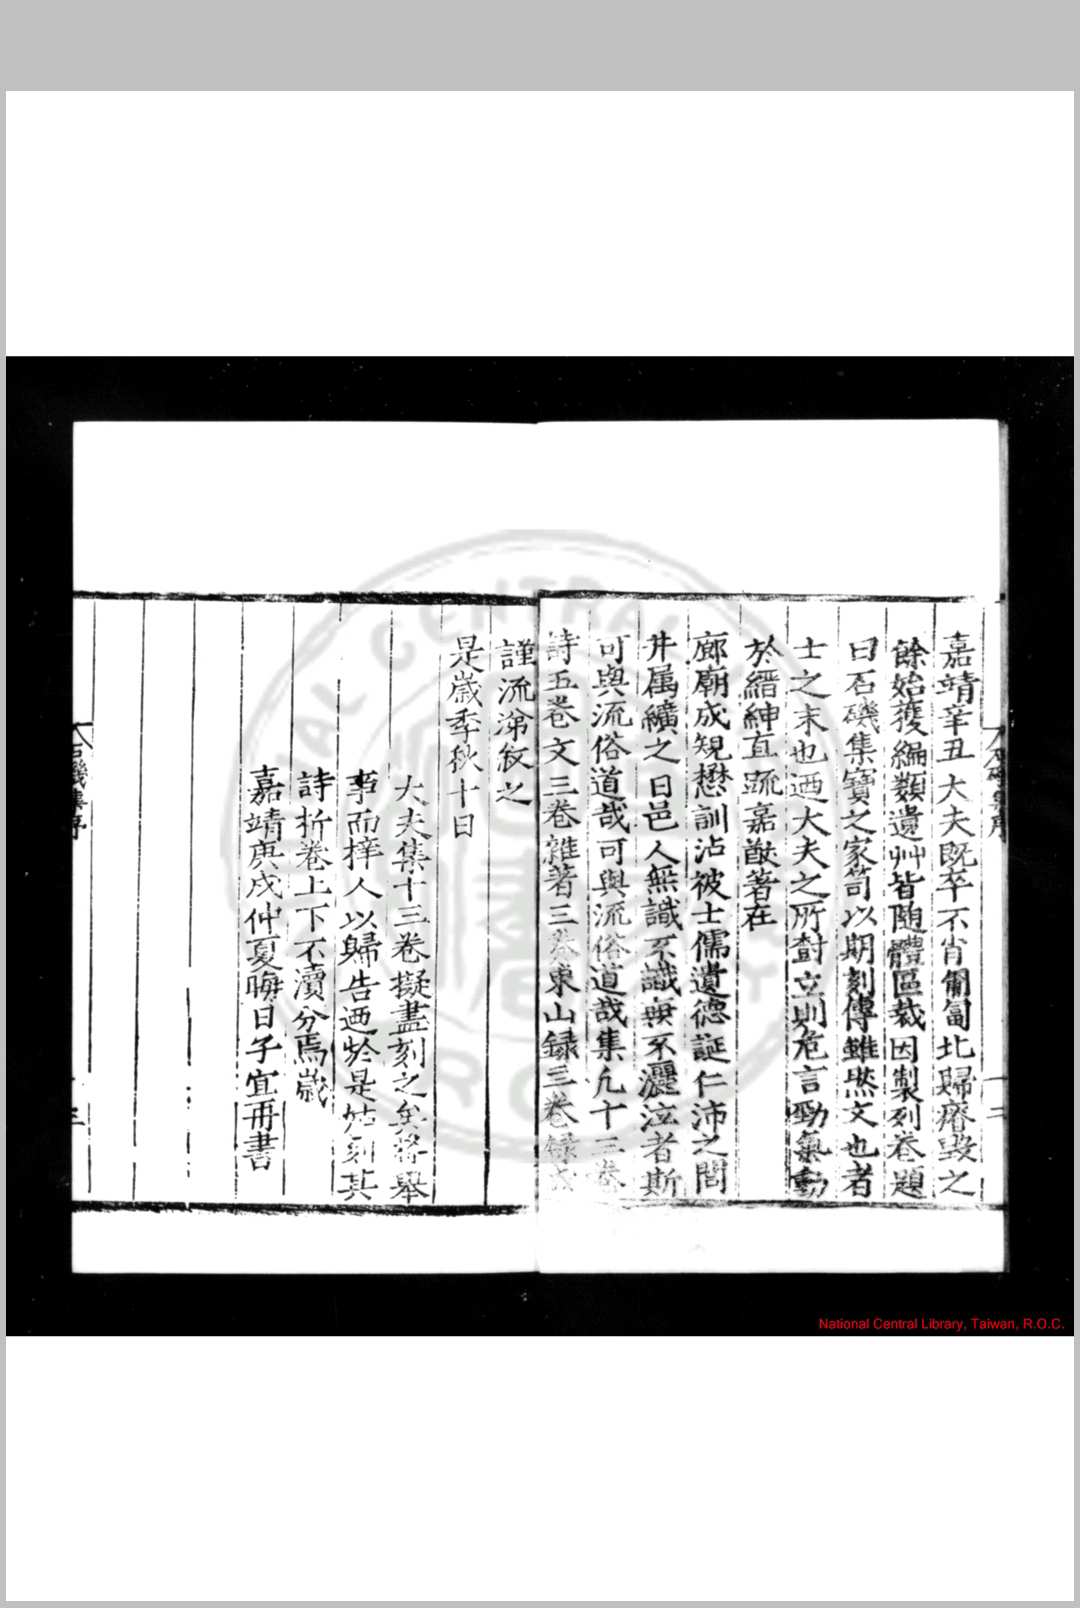 嘉靖辛丑大夫既卒不肖匍匐北歸瘠毀之
餘始獲編類遺艸皆随體區裁因製列卷題
曰石磯集寶之家笥以期刻傳雖然文也者
士之末也迺大夫之所嘗立則危言勁氣動
於縉紳直䟽嘉猷著在
廊廟成規懋訓沾被士儒遺德誕仁沛之閭
井属纊之日邑人無識不識無不灑泣者斯
可與流俗道哉可與流俗道哉集凢十三卷
詩五卷文三卷雜著三卷東山録三卷録
謹流涕叙之
是歲季秋十日
大夫集十三卷擬盡刻之矣將舉
事而梓人以歸告迺於是姑刻其
詩析卷上下不瀆分焉歲
嘉靖庚戌仲夏晦日子宜再書
石磯集序
二
石磯集序
三
National Central Library, Taiwan, R.O.C.